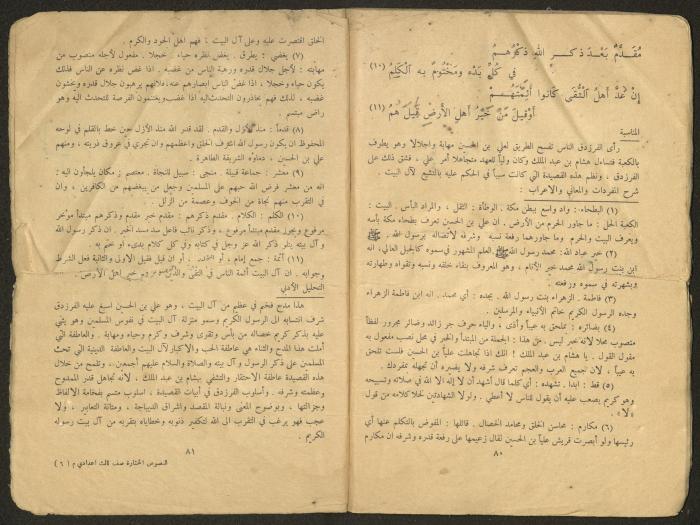 مقدم بعد ذكر الله ذكرهم
في كل بدء ومختوم به الكلم (١٠)
إن عد أهل التقى كانوا أئمتهم
أو قيل من خير أهل الأرض قيل هم (١١)
المناسبة
رأى الفرزدق الناس تفسح الطريق لعلي بن الحسين مهابة واجلالا وهو يطوف
بالكعبة فتساءل هشام بن عبد الملك وكان ولياً للعهد متجاهلا أمر علي ، فشق ذلك على
الفرزدق ، ونظم هذه القصيدة التي كانت سبباً في الحكم عليه بالتشيع لآل البيت .
شرح المفردات والمعاني والاعراب :
(١) البطحاء : واد واسع ببطن مكة . الوطأة : الثقل ، والمراد البأس . البيت :
الكعبة الحل : ما جاور الحرم من الأرض . ان علي بن الحسين تعرف بطحاء مكة بأسه
ويعرف البيت والحرم وما جاورهما رفعة نسبه وشرفه لأتصاله برسول الله ﷺ
(٢) خير عباد الله : محمد رسول الله ﷺ العلم المشهور في سموه كالجبل العالي ، انه
ابن بنت رسول الله محمد خير الأنام ، وهو المعروف بنقاء خلقه ونسبه وتقواه وطهارته
وبشهرته في سموه ورفعته .
(٣) فاطمة . الزهراء بنت رسول الله . بجده : أي محمد . انه ابن فاطمة الزهراء
وجده الرسول الكريم خاتم الأنبياء والمرسلين .
(٤) بضائره : بملحق به عيباً وأذى ، والباء حرف جر زائد وضائر مجرور لفظاً
منصوب محلا لأنه خبر ليس . من هذا : الجملة من المبتدأ والخبر في محل نصب مفعول به
مقول القول . يا هشام بن عبد الملك ! انك اذا تجاهلت علياً بن الحسين فلست تلحق
به عيباً ، لان جميع العرب والعجم تعرف شرفه ولا يضيره أن تجهله بمفردك .
(٥) قط : ابدا . تشهده : أي كلما قال أشهد أن لا إله الا الله في صلاته وتسبيحه
وهو كريم يصعب عليه أن يقول للناس لا أعطي . ولولا الشهادتين لخلا كلامه من قول
«لا» .
(٦) مكارم : محاسن الخلق ومحامد الخصال . قائلها : المفوض بالتكلم عنها أي
رئيسها ولو أبصرت قريش علياً بن الحسين لقال زعيمها على رفعة قدره وشرفه ان مكارم
٨٠
الخلق اقتصرت عليه وعلى آل البيت ، فهم اهل الجود والكرم .
(٧) يغضي : يطرق . يغض نظره حياء . خجلا . مفعول لأجله منصوب من
مهابته : لأجل جلال قدره ورهبة الناس من غضبه . اذا غض نظره عن الناس فذلك
يكون حياء وخجلا ، اذا غض الناس أبصارهم عنه ، فلأنهم يرهبون جلال قدره ويخشون
غضبه ، لذلك فهم يحاذرون التحدث اليه اذا غضب ويغتنمون الفرصة للتحدث اليه وهو
راض مبتسم .
(٨) قدماً : منذ الأزل والقدم . لقد قدر الله منذ الأزل حين خط بالقلم في لوحه
المحفوظ ان يكون رسول الله اشرف الخلق واعظمهم وان تجري في عروق ذريته ، ومنهم
علي بن الحسين ، دماؤه الشريفة الطاهرة .
(٩) معشر : جماعة قبيلة . منجى : سبيل النجاة . معتصم : مكان يلجأون اليه :
انه من معشر فرض الله حبهم على المسلمين وجعل من يبغضهم من الكافرين ، وان
في التقرب منهم نجاة من الخوف وعصمة من الزلل .
(١٠) الكلم : الكلام . مقدم ذكرهم : مقدم خبر مقدم وذكرهم مبتدأ مؤخر
مرفوع ويجوز مقدم مبتدأ مرفوع ، وذكر نائب فاعل سد مسد الخبر . ان ذكر رسول الله
وآل بيته يتلو ذكر الله عز وجل في كتابه وفي كل كلام بدىء او ختم به .
(١١) أئمة : جمع إمام ، أو ان قيل فقيل الاولى والثانية فعل الشرط
وجوابه . ان آل البيت أئمة الناس في التقى خير اهل الأرض .
التحليل الأدبي
هذا مدح فخم في عظيم من آل البيت ، وهو علي بن الحسين اسبغ عليه الفرزدق
شرف انتسابه الى الرسول الكريم وسمو منزلة آل البيت في نفوس المسلمين وهو يثني
عليه بذكر كريم خصاله من بأس وتقوى وشرف وكرم وحياء ومهابة . والعاطفة التي
أملت هذا المدح والثناء هي عاطفة الحب والاكبار لآل البيت والعاطفة الدينية التي تحث
المسلمين على ذكر الرسول و آل بيته والصلاة والسلام عليهم أجمعين . وتلمح من خلال
هذه القصيدة عاطفة الاحتقار والتشفي بهشام بن عبد الملك ، لأنه تجاهل قدر الممدوح
وعظمته وشرفه . وأسلوب الفرزدق في أبيات القصيدة ، اسلوب متسم بفخامة الألفاظ
وجزالتها ، وبوضوح المعنى ونبالة المقصد واشراق الديباجة ، ومتانة التعابير ، ولا
عجب فهو يرغب في التقرب الى الله لتكفير ذنوبه وخطاياه بتقربه من آل بيت رسوله
الكريم .
٨١
النصوص المختارة صف ثالث اعدادي م (٦)